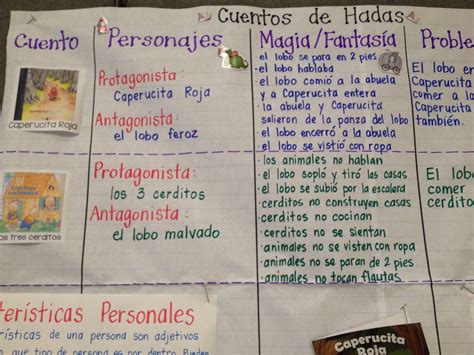 Cuentos de Hadas
Cuento
Personajes
Magia/Fantasía
Proble
Caperucita Roja
Protagonista:
Caperucita Roja
Antagonista:
el lobo feroz
· el lobo se para en 2 pies
· el lobo hablaba
· el lobo comió a la abuela
y a Caperucita entera
· la abuela y Caperucita
salieron de la panza del lobo
· el lobo encerró a la abuela
· el lobo se vistió con ropa
El lobo
Caperucita
comer a la
Caperucita
también.
los tres cerditos
Protagonista:
los 3 cerditos
Antagonista:
el lobo malvado
· los animales no hablan
· el lobo sopló y tiró las casas
· el lobo se subió por la escalera
· cerditos no construyen casas
· cerditos no cocinan
· cerditos no se sientan
· animales no se visten con ropa
· animales no se paran de 2 pies
· animales no tocan flautas
El lobo
comer
cerdito
terísticas Personales
rísticas de una persona son adjetivos
que tipo de persona es por dentro. Pueden
Caperucita
Roja